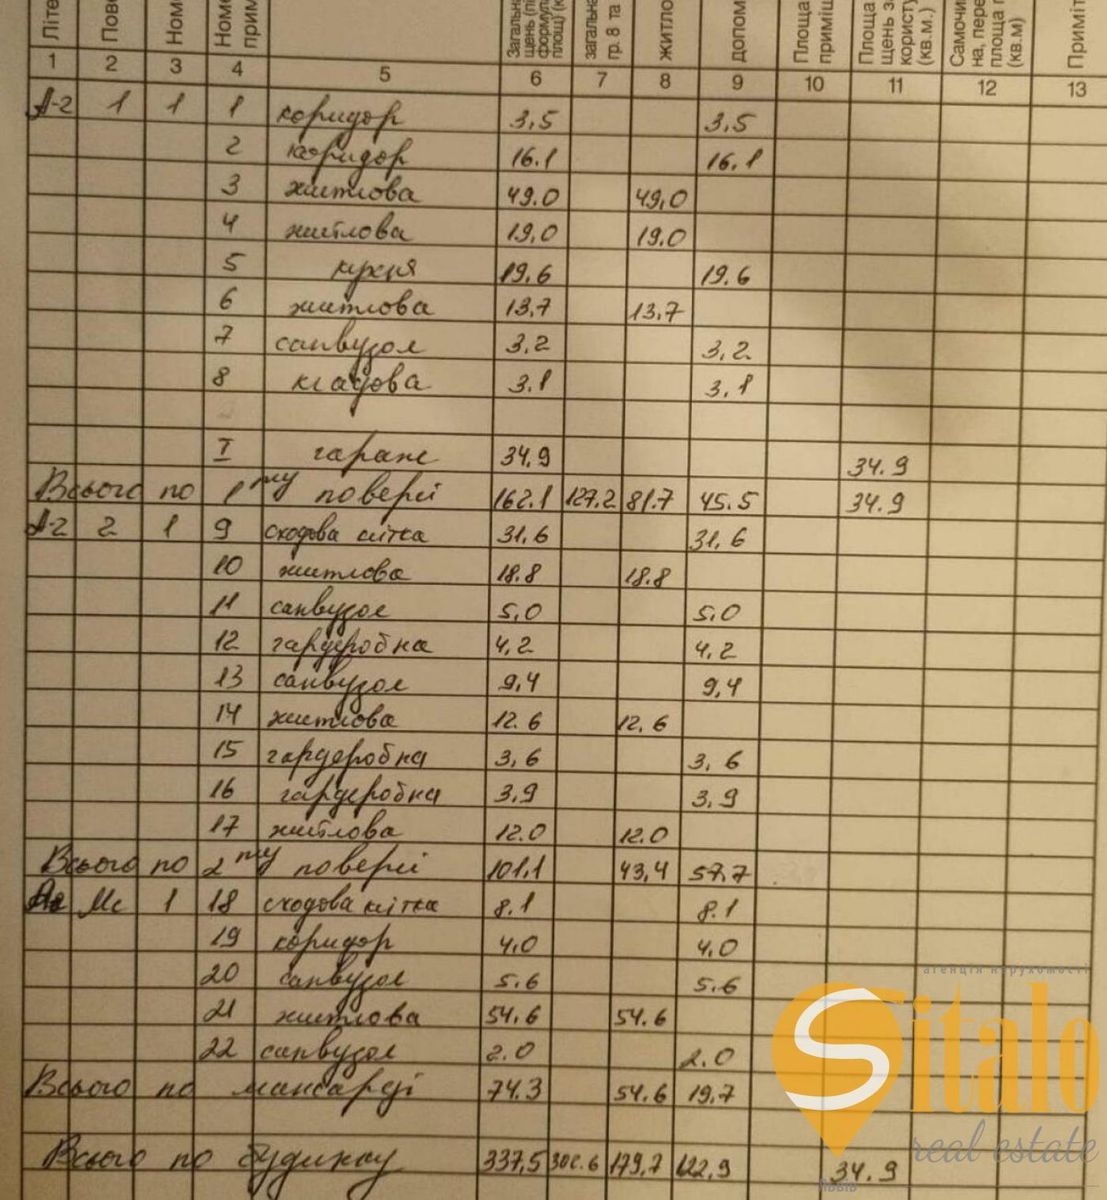 Літе Пове Номе Номе прим Загальна щень (пі формула площ) (к загальна гр. 8 та житло допом Площа приміщ Площа щень за користу (кв.м.) Самочин на, пере площа п (кв.м) Приміт
1 2 3 4 5 6 7 8 9 10 11 12 13
А-2 1 1 1 коридор 3,5 3,5
2 коридор 16.1 16,1
3 житлова 49.0 49,0
4 житлова 19,0 19.0
5 кухня 19.6 19.6
6 житлова 13,7 13,7
7 санвузол 3,2 3,2
8 кладова 3.1 3,1
I гараж 34,9 34.9
Всього по 1му поверсі 162.1 127.2 81.7 45.5 34.9
А-2 2 1 9 сходова клітка 31,6 31,6
10 житлова 18.8 18.8
11 санвузол 5,0 5.0
12 гардеробна 4,2 4,2
13 санвузол 9,4 9,4
14 житлова 12.6 12.6
15 гардеробна 3,6 3,6
16 гардеробна 3,9 3,9
17 житлова 12.0 12.0
Всього по 2му поверсі 101,1 43,4 57,7
Мс 1 18 сходова клітка 8.1 8.1
19 коридор 4,0 4,0
20 санвузол 5.6 5.6
21 житлова 54,6 54.6
22 санвузол 2.0 2.0
Всього по мансарді 74.3 54.6 19,7
Всього по будинку 337,5 302.6 179,7 122,9 34.9
агенція нерухомості
Sitalo
real estate
Львів